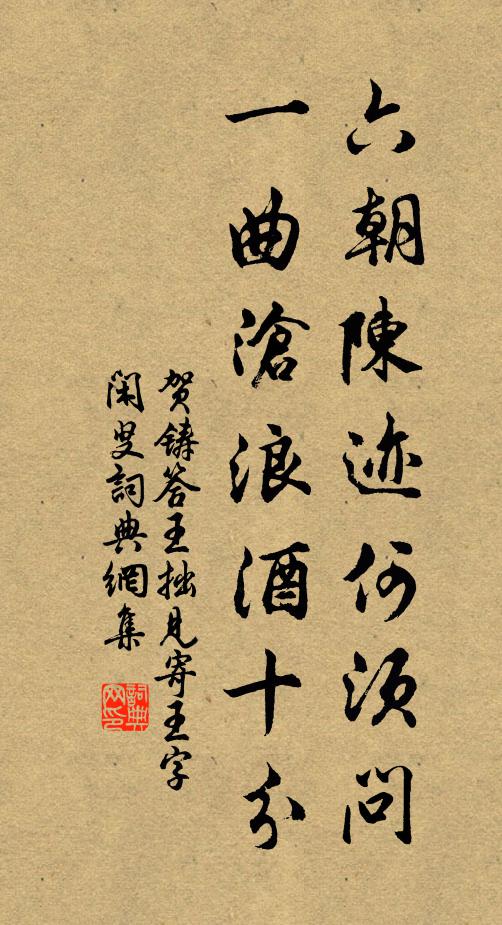 六朝陳迹何須問
一曲滄浪酒十分
贺鑄答王拙見寄王字
閑叟詞典網集
詞典网印